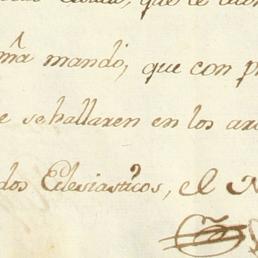 que le
ma mandó, que con
se hallaren en los
dos Eclesiasticos, el